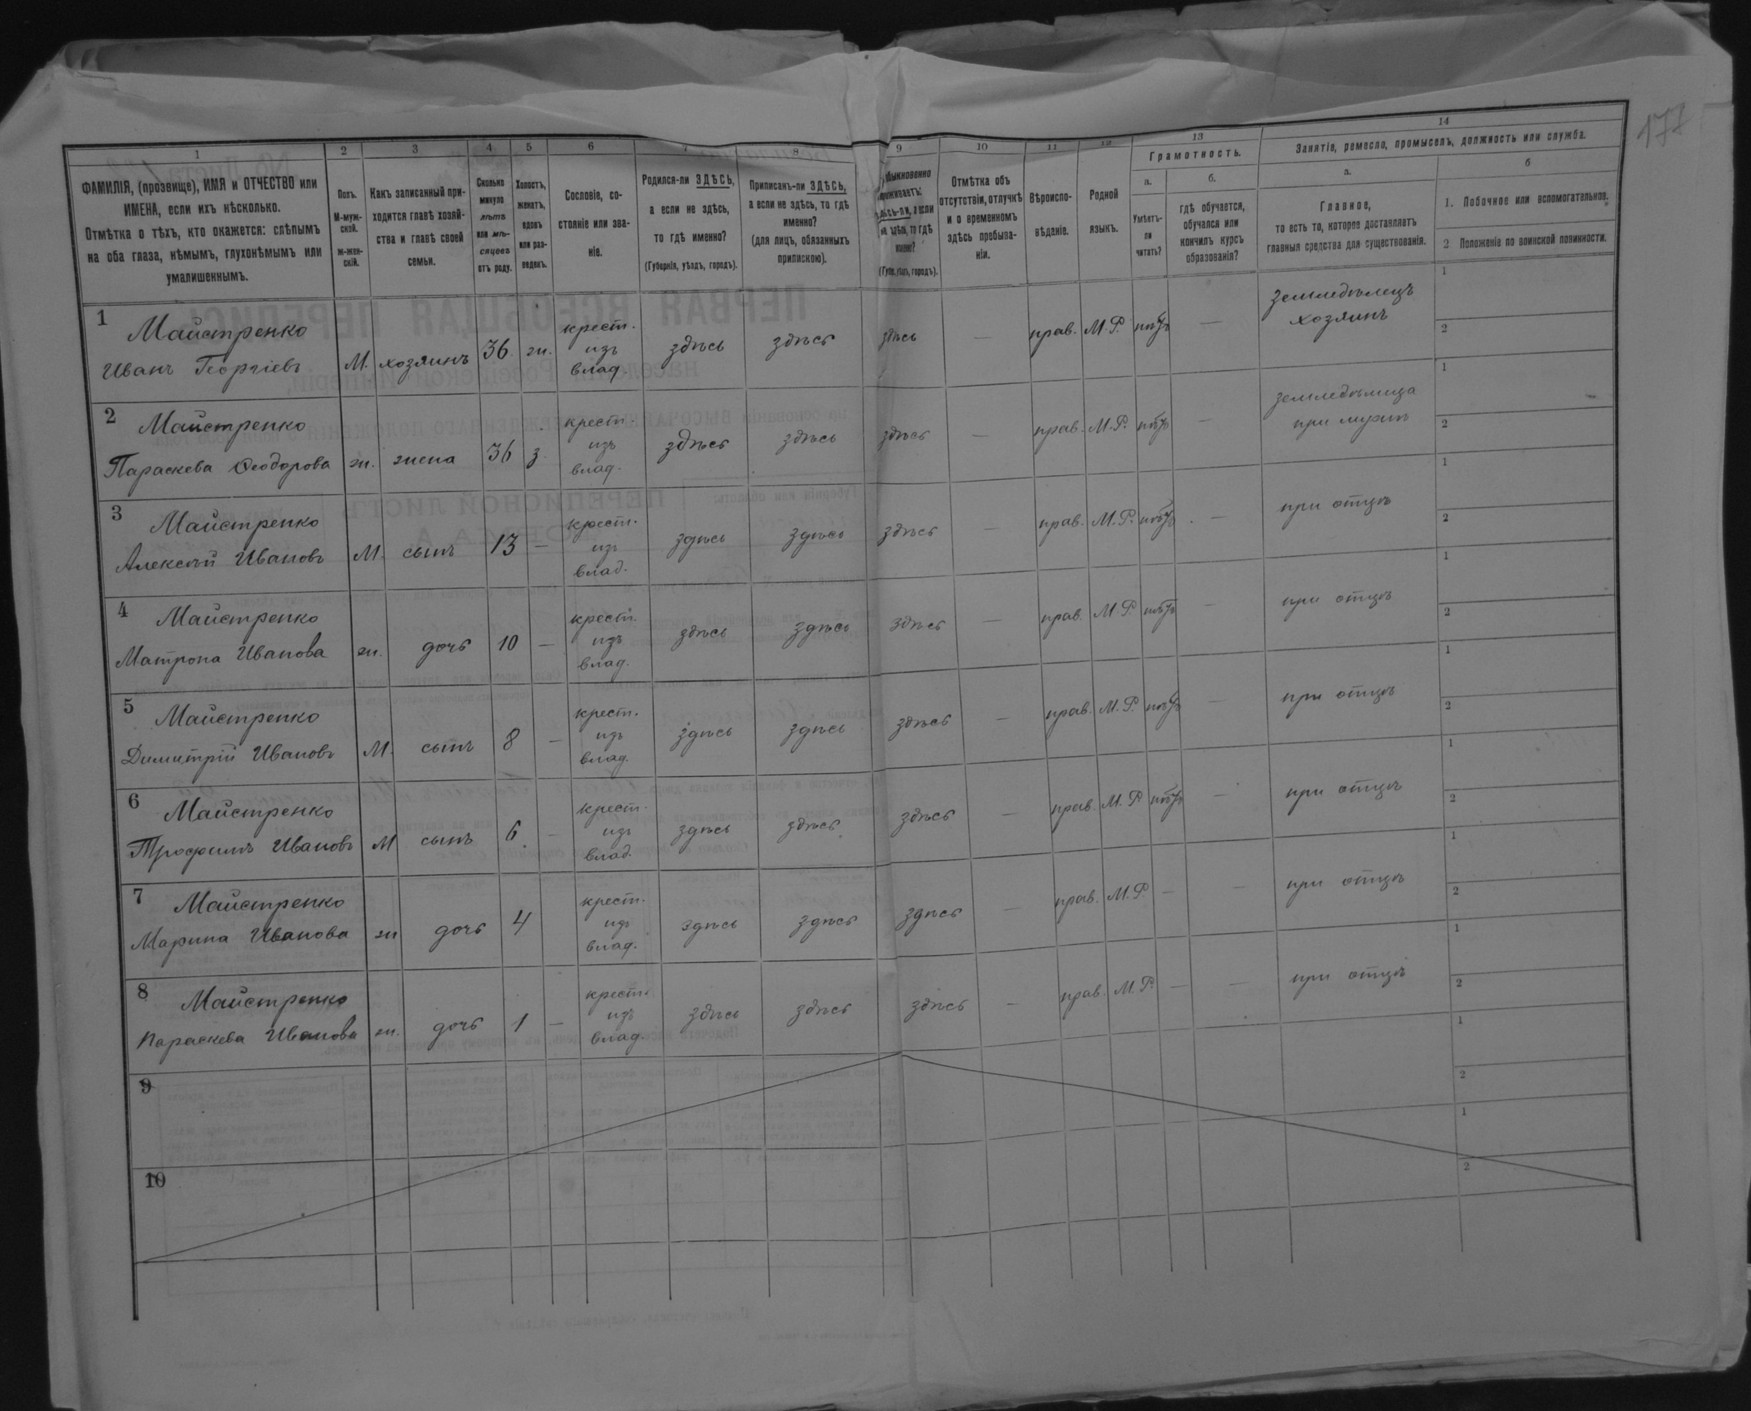 177
1 2 3 4 5 6 8 9 10 11 13 14
ФАМИЛІЯ, (прозвище), ИМЯ и ОТЧЕСТВО или
ИМЕНА, если ихъ нѣсколько.
Отмѣтка о тѣхъ, кто окажется: слѣпымъ
на оба глаза, нѣмымъ, глухонѣмымъ или
умалишеннымъ.
Полъ.
М-муж-
ской.
ж-жен-
скій.
Какъ записанный при-
ходится главѣ хозяй-
ства и главѣ своей
семьи.
Сколько
минуло
лѣтъ
или мѣ-
сяцевъ
отъ роду.
Холостъ,
женатъ,
вдовъ
или раз-
веденъ.
Сословіе, со-
стояніе или зва-
ніе.
Родился-ли ЗДѢСЬ,
а если не здѣсь,
то гдѣ именно?
(Губернія, уѣздъ, городъ).
Приписанъ-ли ЗДѢСЬ,
а если не здѣсь, то гдѣ
именно?
(для лицъ, обязанныхъ
припискою).
здѣсь, то гдѣ
(Губ., уѣздъ, городъ).
Отмѣтка объ
отсутствіи, отлучкѣ
и о временномъ
здѣсь пребыва-
ніи.
Вѣроиспо-
вѣданіе.
Родной
языкъ.
Грамотность.
а.
Умѣетъ-
ли
читать?
б.
гдѣ обучается,
обучался или
кончилъ курсъ
образованія?
Занятія, ремесло, промыселъ, должность или служба.
а.
Главное,
то есть то, которое доставляетъ
главныя средства для существованія.
б
1. Побочное или вспомогательное.
2 Положеніе по воинской повинности.
1 Майстренко
Иванъ Георгіевъ М. хозяинъ 36 ж. крест. изъ влад. здѣсь здѣсь здѣсь — прав. М.Р. — земледѣлецъ хозяинъ 1 2
2 Майстренко
Параскева Ѳеодорова ж. жена 36 з. крест. изъ влад. здѣсь здѣсь здѣсь — прав. М.Р. — при мужѣ 1 2
3 Майстренко
Алексѣй Ивановъ М. сынъ 13 — крест. изъ влад. здѣсь здѣсь здѣсь — прав. М.Р. — при отцѣ 1 2
4 Майстренко
Матрона Иванова ж. дочь 10 — крест. изъ влад. здѣсь здѣсь здѣсь — прав. М.Р. — при отцѣ 1 2
5 Майстренко
Димитрій Ивановъ М. сынъ 8 — крест. изъ влад. здѣсь здѣсь здѣсь — прав. М.Р. — при отцѣ 1 2
6 Майстренко
Трофимъ Ивановъ М сынъ 6 — крест. изъ влад. здѣсь здѣсь здѣсь — прав. М.Р. — при отцѣ 1 2
7 Майстренко
Марина Иванова ж дочь 4 крест. изъ влад. здѣсь здѣсь здѣсь — прав. М.Р. — — при отцѣ 1 2
8 Майстренко
Параскева Иванова ж. дочь 1 — крест. изъ влад. здѣсь здѣсь здѣсь — прав. М.Р. — — при отцѣ 1 2
9 1 2
10 1 2